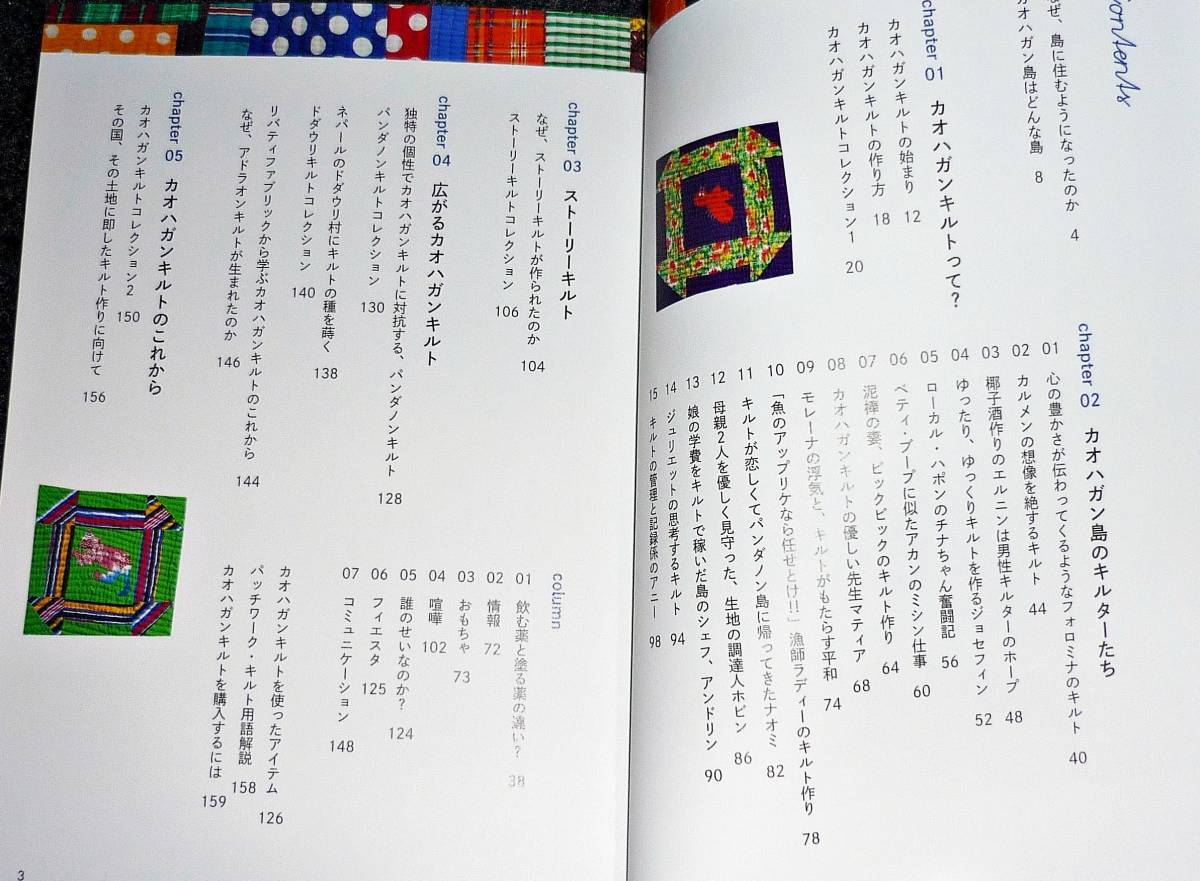 contents
なぜ、島に住むようになったのか 4
カオハガン島はどんな島 8
chapter 01 カオハガンキルトって?
カオハガンキルトの始まり 12
カオハガンキルトの作り方 18
カオハガンキルトコレクション1 20
chapter 02 カオハガン島のキルターたち
01 心の豊かさが伝わってくるようなフォロミナのキルト 40
02 カルメンの想像を絶するキルト 44
03 椰子酒作りのエルニンは男性キルターのホープ 48
04 ゆったり、ゆっくりキルトを作るジョセフィン 52
05 ローカル・ハポンのチナちゃん奮闘記 56
06 ベティ・ブープに似たアカンのミシン仕事 60
07 泥棒の妻、ピックピックのキルト作り 64
08 カオハガンキルトの優しい先生マティア 68
09 モレーナの浮気と、キルトがもたらす平和 74
10 「魚のアップリケなら任せとけ!!」漁師ラディーのキルト作り 78
11 キルトが恋しくてパンダノン島に帰ってきたナオミ 82
12 母親2人を優しく見守った、生地の調達人ホビン 86
13 娘の学費をキルトで稼いだ島のシェフ、アンドリン 90
14 ジュリエットの思考するキルト 94
15 キルトの管理と記録係のアニー 98
chapter 03 ストーリーキルト
なぜ、ストーリーキルトが作られたのか 104
ストーリーキルトコレクション 106
chapter 04 広がるカオハガンキルト
独特の個性でカオハガンキルトに対抗する、パンダノンキルト 128
パンダノンキルトコレクション 130
ネパールのドダウリ村にキルトの種を蒔く 138
ドダウリキルトコレクション 140
リバティファブリックから学ぶカオハガンキルトのこれから 144
なぜ、アドラオンキルトが生まれたのか 146
chapter 05 カオハガンキルトのこれから
カオハガンキルトコレクション2 150
その国、その土地に即したキルト作りに向けて 156
column
01 飲む薬と塗る薬の違い? 38
02 情報 72
03 おもちゃ 73
04 喧嘩 102
05 誰のせいなのか? 124
06 フィエスタ 125
07 コミュニケーション 148
カオハガンキルトを使ったアイテム 126
パッチワーク・キルト用語解説 158
カオハガンキルトを購入するには 159
3